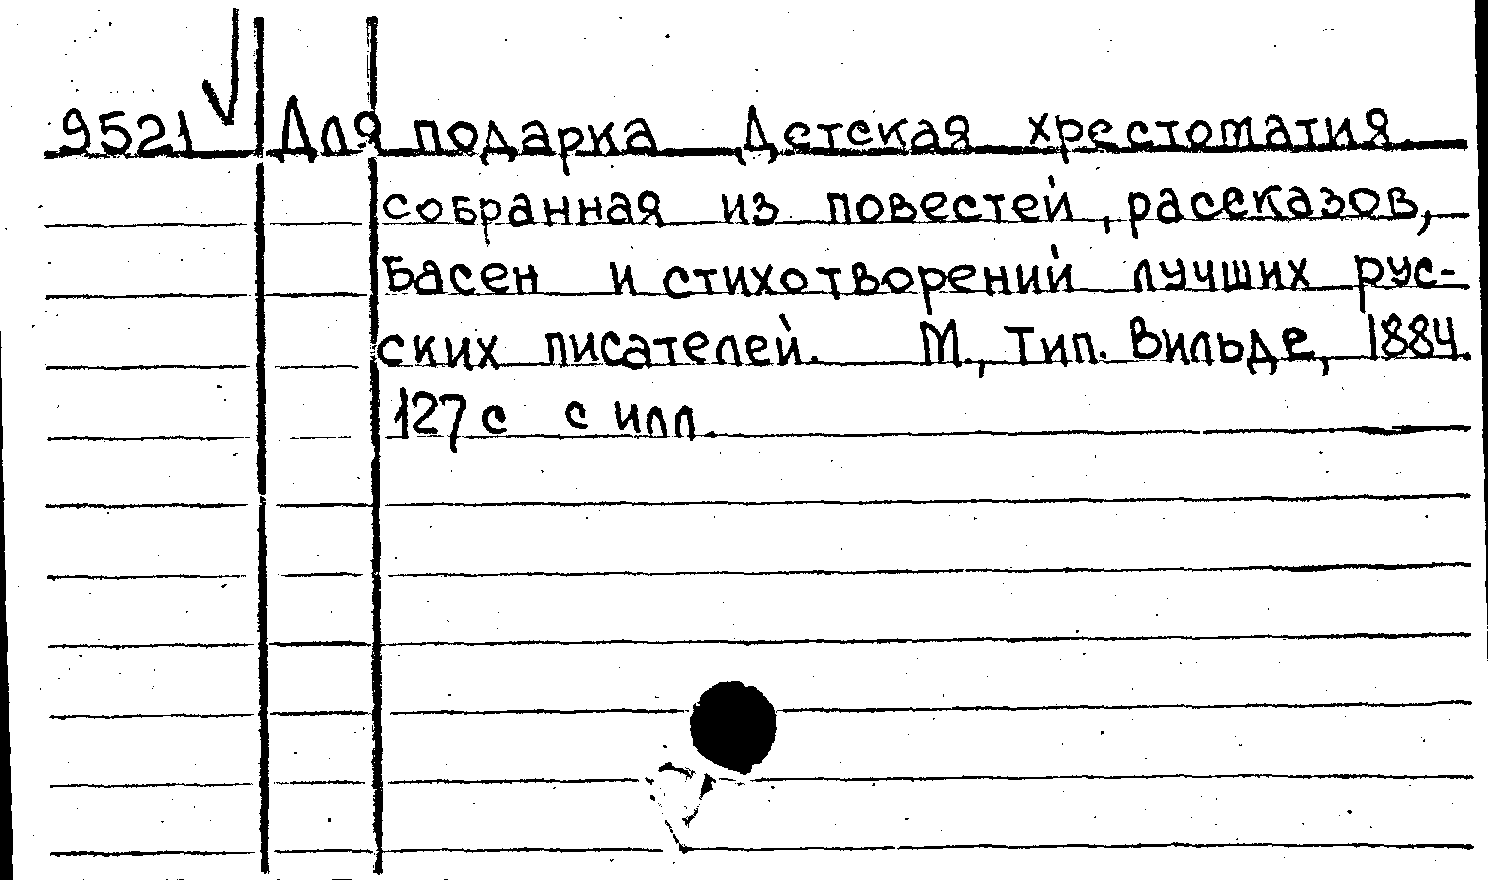 9521 Для подарка Детская хрестоматия
собранная из повестей, рассказов,
Басен и стихотворений лучших рус-
ских писателей. М., Тип. Вильде, 1884.
127 с с илл.